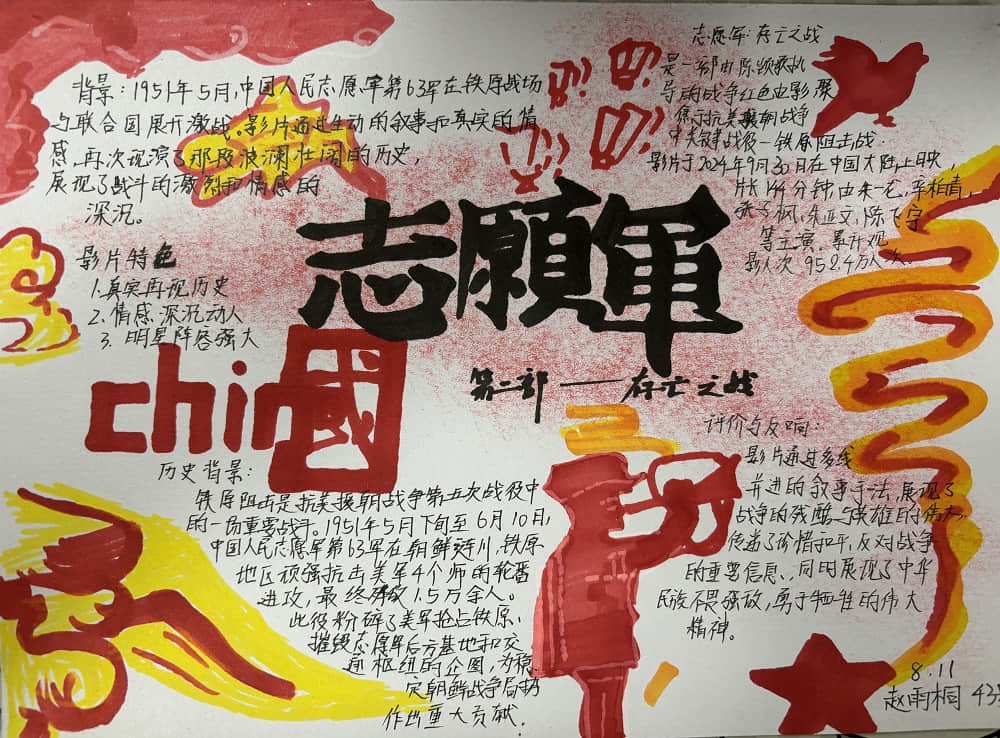 背景：1951年5月，中国人民志愿军第63军在铁原战场
与联合国展开激战。影片通过生动的叙事和真实的情
感，再次现演了那段波澜壮阔的历史，
展现了战斗的激烈和情感的
深沉。
影片特色
1.真实再现历史
2.情感深沉动人
3.明星阵容强大
志愿军：存亡之战
是一部由陈凯歌执
导的战争红色电影，聚
焦于抗美援朝战争
中关键战役－铁原阻击战.
影片于2024年9月30日在中国大陆上映，
片长144分钟，由朱一龙，辛柏青，
张子枫，朱亚文，陈飞宇
等主演，累计观
影人次952.4万人次。
志願軍
第二部——存亡之战
chin國
历史背景：
铁原阻击是抗美援朝战争第五次战役中
的一场重要战斗。1951年5月下旬至6月10日，
中国人民志愿军第63军在朝鲜涟川，铁原
地区顽强抗击美军4个师的轮番
进攻，最终歼敌1.5万余人。
此役粉碎了美军抢占铁原、
摧毁志愿军后方基地和交
通枢纽的企图，为稳
定朝鲜战争局势
作出重大贡献.
评价与反响：
影片通过多线
并进的叙事手法，展现了
战争的残酷与英雄的伟大，
传递了珍惜和平，反对战争
的重要信息、同时展现了中华
民族不畏强敌，勇于牺牲的伟大
精神。
8.11
赵雨桐